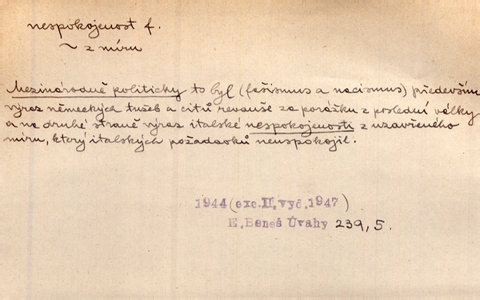 nespokojenost f.
~ z míru
Mezinárodně politicky to byl (fašismus a nacismus) především
výraz německých tužeb a citů revanše za porážku z poslední války
a na druhé straně výraz italské nespokojenosti z uzavřeného
míru, který italských požadavků neuspokojil.
1944 (exc. II. vyd. 1947)
E. Beneš Úvahy 239, 5.